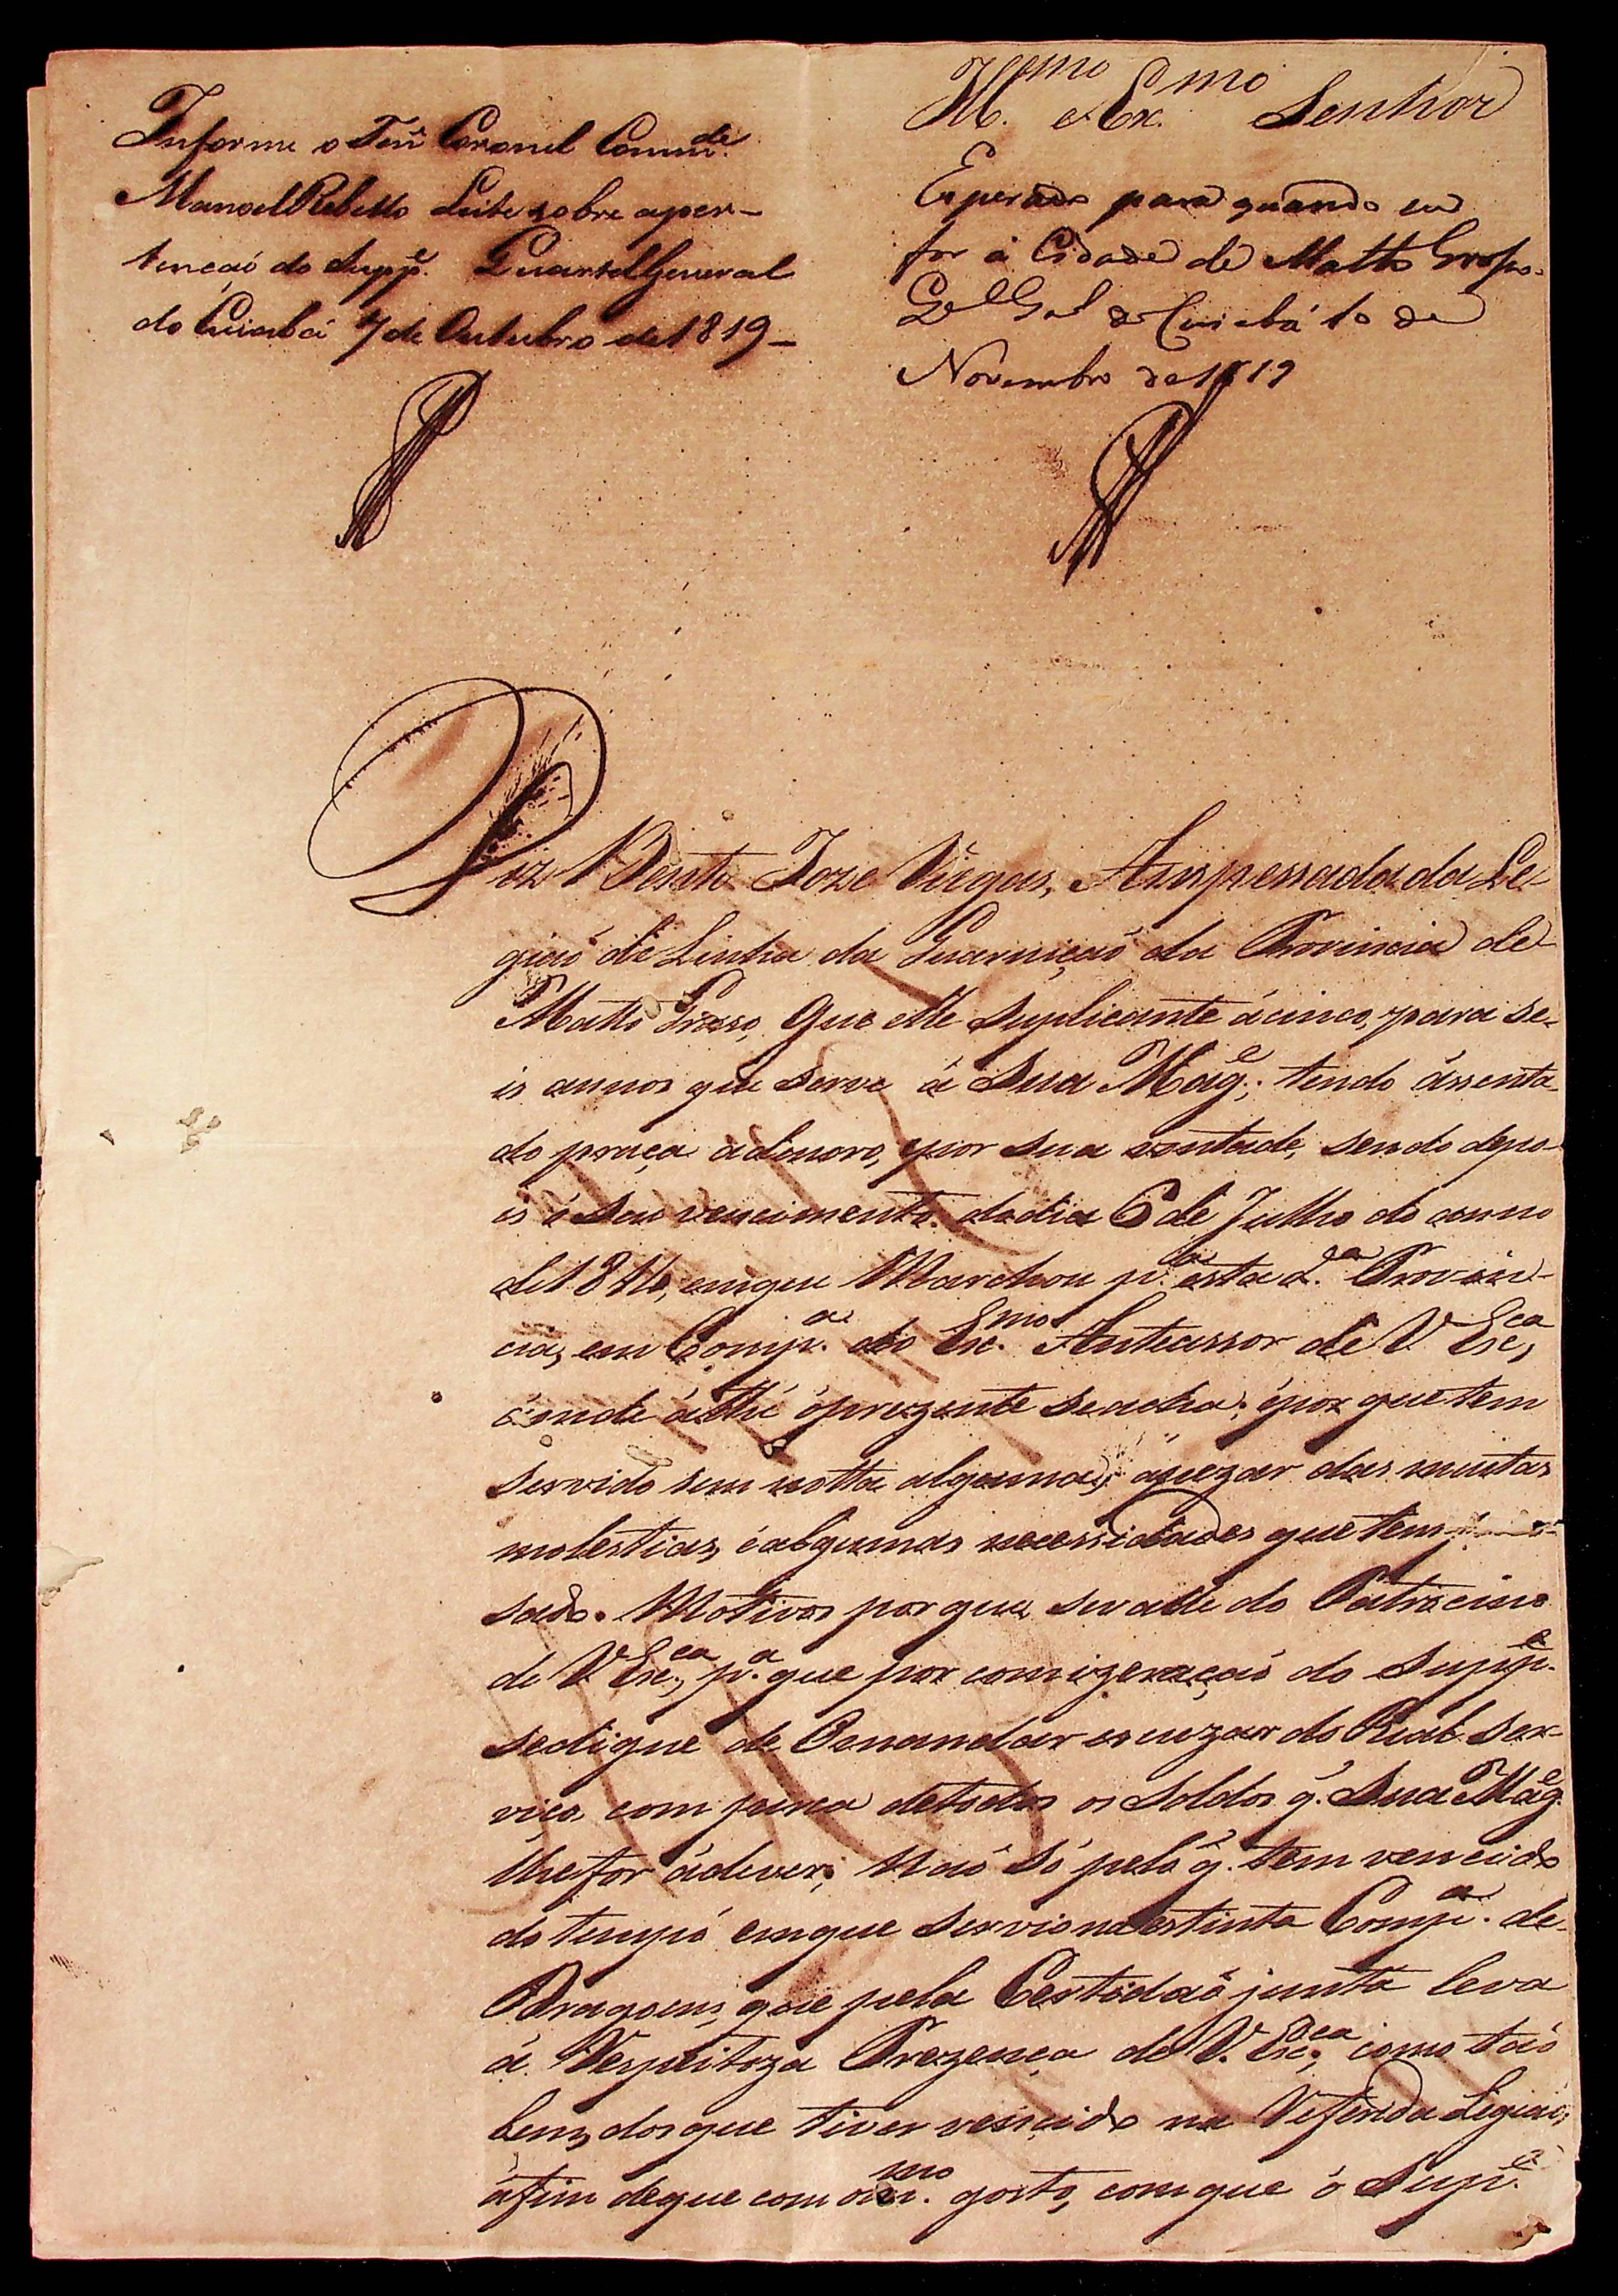 Informe o Ten.e Coronel Comm.de
Manoel Rebello Leite sobre aper-
tencaó do Supp.e Quartel General
do Cuiabá 7 de Outubro de 1819 —
Ill.mo e Ex.mo Senhor
Esperado para quando eu
for á Cidade de Matto Grosso.
Q.el G.al de Cuiabá 10 de
Novembro de 1819
Diz Bento Joze Viegas, Anspessada da Le-
giaó de Linha da Guarniçaó da Provincia de
Matto Groso, Que elle Suplicante á cinco, para se-
is annos que Serve á Sua Mag.e; tendo ássenta-
do praça adinovo, epor sua vontade, sendo depo-
is ó Seu vencimento do dia 6 de Julho do anno
de 1816, emque Marchou p.a esta d.a Provin-
cia, em Comp.a do Ex.mo Antecessor de V. Ex.ca,
áonde áthé óprezente seacha; épor que tem
servido sem notta alguma, ápezar das muitas
molestias, éalgumas necessidades que tem
sado. Motivos por que sevalle do Patrocinio
de V. Ex.ca, p.a que por comizeraçaó do Supp.e
sedigne de Omandar escuzar do Real Ser-
viço, com paga detodos os Soldos q. Sua Mag.e
lhefor ádever; Naó Só pelo q. tem vencido
do tempo emque Servio naestinta Comp.a de
Dragoens, que pela Certidaó junta leva
á Respeitoza Prezença de V. Ex.ca, como taó
bem, dosque tiver vencido na Referida Legiaó;
áfim deque com om.mo gosto, comque ó Sup.e